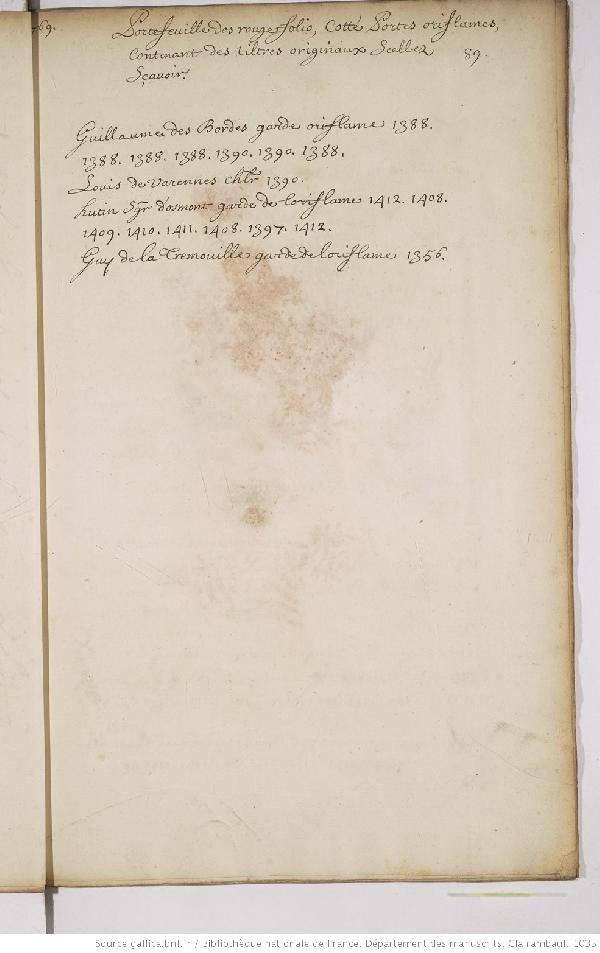 769.
Portefeuille dos rouge folio, Cotté Portes oriflames,
Contenant des tiltres originaux Scellez 89.
Sçavoir.
Guillaume des Bordes garde oriflame 1388.
1388. 1388. 1388. 1390. 1390. 1388.
Louis de Varennes chlr 1390.
hutin Sgr d'osmont garde de loriflame 1412. 1408.
1409. 1410. 1411. 1408. 1397. 1412.
Guy de la Tremouille garde de loriflame 1356.
Source gallica.bnf.fr / Bibliothèque nationale de France. Département des manuscrits. Clairambault 1035